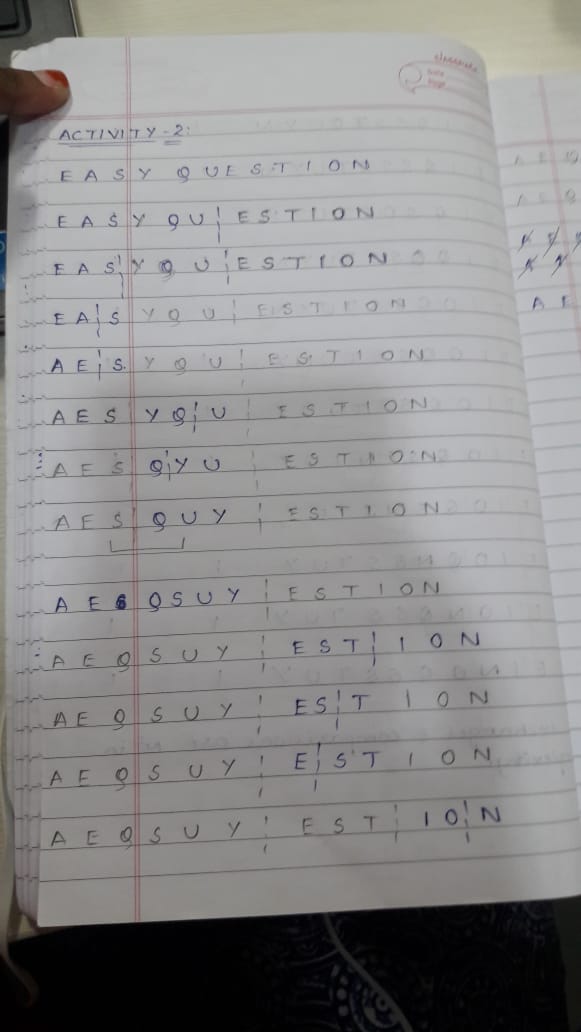 classmate
Date
Page
ACTIVITY-2:
E A S Y Q U E S T I O N
E A S Y Q U | E S T I O N
E A S | Y Q U | E S T I O N
E A | S Y Q U | E S T I O N
A E | S Y Q U | E S T I O N
A E S Y Q | U | E S T I O N
A E S Q | Y U | E S T I O N
A E S Q U Y | E S T I O N
A E Q S U Y | E S T I O N
A E Q S U Y | E S T | I O N
A E Q S U Y | E S | T I O N
A E Q S U Y | E | S T I O N
A E Q S U Y | E S T | I O | N
A E